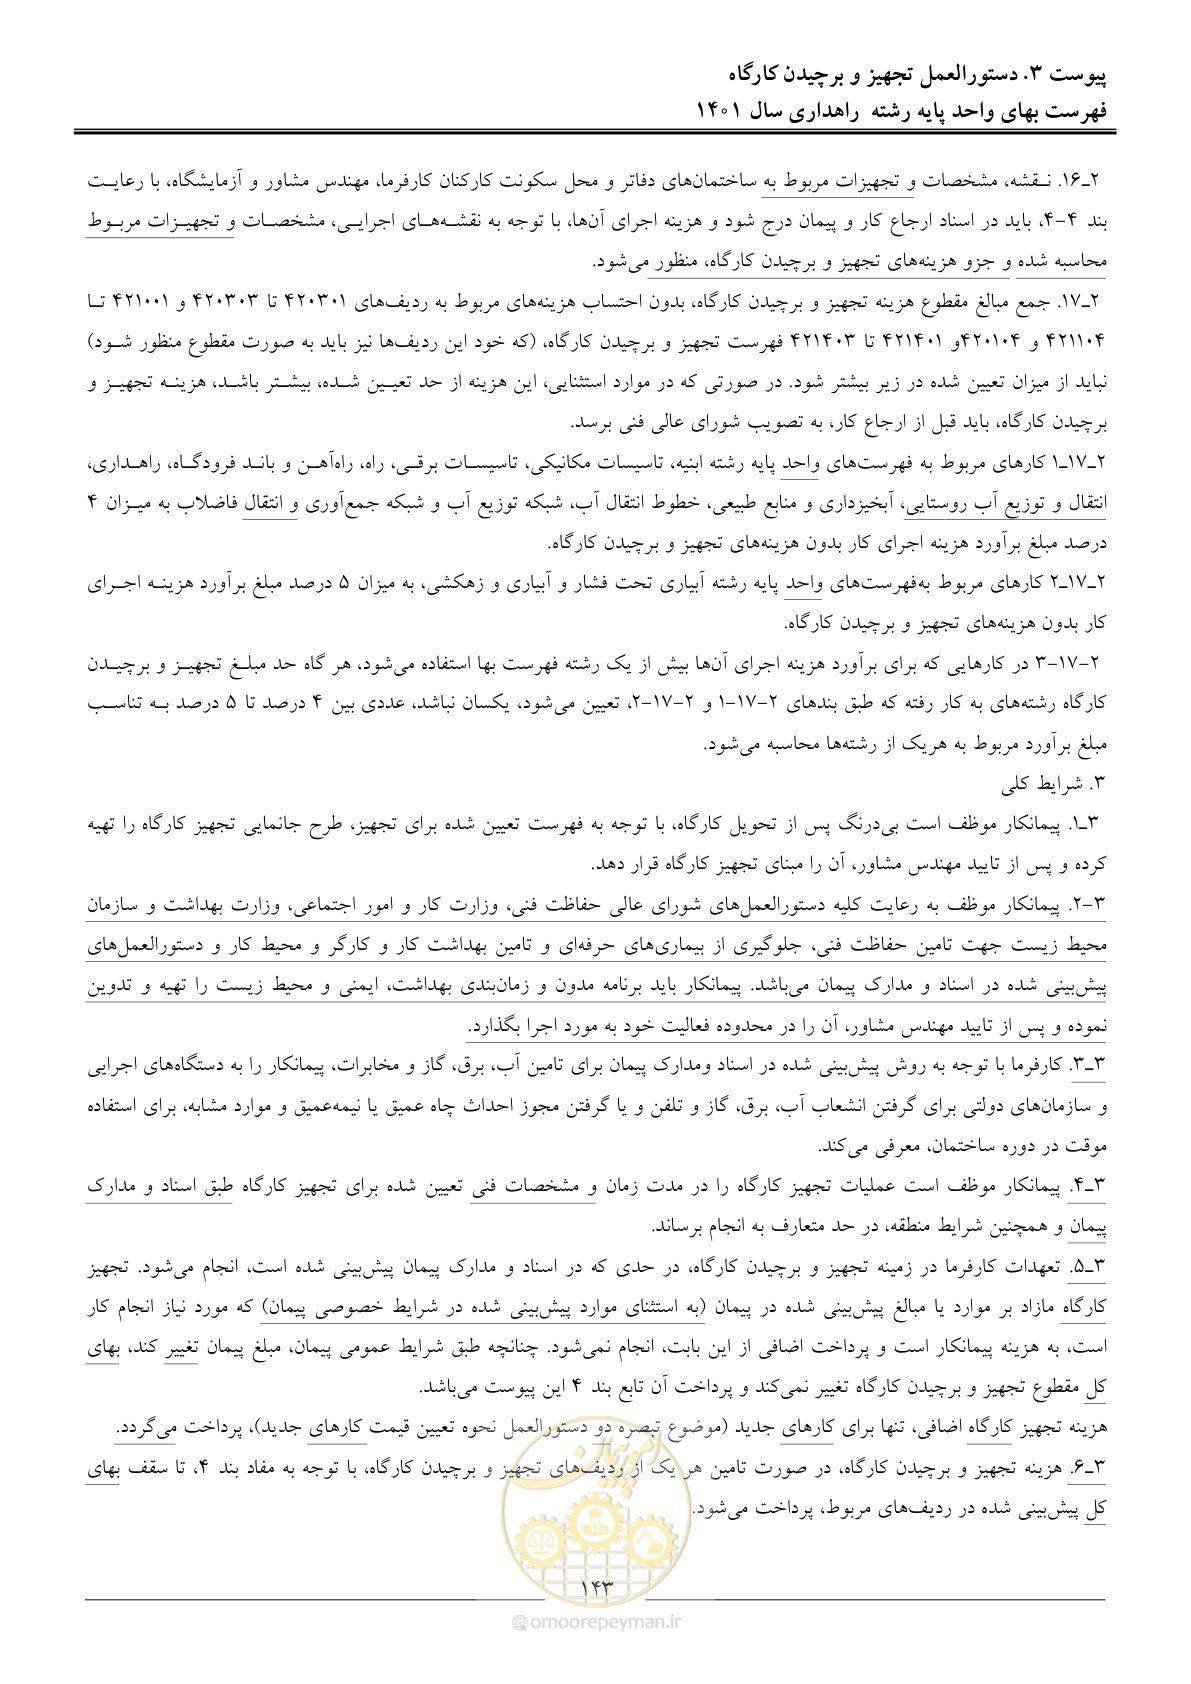 پیوست ۳. دستورالعمل تجهیز و برچیدن کارگاه
فهرست بهای واحد پایه رشته راهداری سال ۱۴۰۱
۲ـ۱۶. نـقشه، مشخصات و تجهیزات مربوط به ساختمان‌های دفاتر و محل سکونت کارکنان کارفرما، مهندس مشاور و آزمایشگاه، با رعایـت
بند ۴-۴، باید در اسناد ارجاع کار و پیمان درج شود و هزینه اجرای آن‌ها، با توجه به نقشـه‌هـای اجرایـی، مشخصـات و تجهیـزات مربـوط
محاسبه شده و جزو هزینه‌های تجهیز و برچیدن کارگاه، منظور می‌شود.
۲ـ۱۷. جمع مبالغ مقطوع هزینه تجهیز و برچیدن کارگاه، بدون احتساب هزینه‌های مربوط به ردیف‌های ۴۲۰۳۰۱ تا ۴۲۰۳۰۳ و ۴۲۱۰۰۱ تـا
۴۲۱۱۰۴ و ۴۲۰۱۰۴و ۴۲۱۴۰۱ تا ۴۲۱۴۰۳ فهرست تجهیز و برچیدن کارگاه، (که خود این ردیف‌ها نیز باید به صورت مقطوع منظور شـود)
نباید از میزان تعیین شده در زیر بیشتر شود. در صورتی که در موارد استثنایی، این هزینه از حد تعیـین شـده، بیشـتر باشـد، هزینـه تجهیـز و
برچیدن کارگاه، باید قبل از ارجاع کار، به تصویب شورای عالی فنی برسد.
۲ـ۱۷ـ۱ کارهای مربوط به فهرست‌های واحد پایه رشته ابنیه، تاسیسات مکانیکی، تاسیسـات برقـی، راه، راه‌آهـن و بانـد فرودگـاه، راهـداری،
انتقال و توزیع آب روستایی، آبخیزداری و منابع طبیعی، خطوط انتقال آب، شبکه توزیع آب و شبکه جمع‌آوری و انتقال فاضلاب به میـزان ۴
درصد مبلغ برآورد هزینه اجرای کار بدون هزینه‌های تجهیز و برچیدن کارگاه.
۲ـ۱۷ـ۲ کارهای مربوط به‌فهرست‌های واحد پایه رشته آبیاری تحت فشار و آبیاری و زهکشی، به میزان ۵ درصد مبلغ برآورد هزینـه اجـرای
کار بدون هزینه‌های تجهیز و برچیدن کارگاه.
۲-۱۷-۳ در کارهایی که برای برآورد هزینه اجرای آن‌ها بیش از یک رشته فهرست بها استفاده می‌شود، هر گاه حد مبلـغ تجهیـز و برچیـدن
کارگاه رشته‌های به کار رفته که طبق بندهای ۲-۱۷-۱ و ۲-۱۷-۲، تعیین می‌شود، یکسان نباشد، عددی بین ۴ درصد تا ۵ درصد بـه تناسـب
مبلغ برآورد مربوط به هریک از رشته‌ها محاسبه می‌شود.
۳. شرایط کلی
۳ـ۱. پیمانکار موظف است بی‌درنگ پس از تحویل کارگاه، با توجه به فهرست تعیین شده برای تجهیز، طرح جانمایی تجهیز کارگاه را تهیه
کرده و پس از تایید مهندس مشاور، آن را مبنای تجهیز کارگاه قرار دهد.
۳-۲. پیمانکار موظف به رعایت کلیه دستورالعمل‌های شورای عالی حفاظت فنی، وزارت کار و امور اجتماعی، وزارت بهداشت و سازمان
محیط زیست جهت تامین حفاظت فنی، جلوگیری از بیماری‌های حرفه‌ای و تامین بهداشت کار و کارگر و محیط کار و دستورالعمل‌های
پیش‌بینی شده در اسناد و مدارک پیمان می‌باشد. پیمانکار باید برنامه مدون و زمان‌بندی بهداشت، ایمنی و محیط زیست را تهیه و تدوین
نموده و پس از تایید مهندس مشاور، آن را در محدوده فعالیت خود به مورد اجرا بگذارد.
۳ـ۳. کارفرما با توجه به روش پیش‌بینی شده در اسناد ومدارک پیمان برای تامین آب، برق، گاز و مخابرات، پیمانکار را به دستگاه‌های اجرایی
و سازمان‌های دولتی برای گرفتن انشعاب آب، برق، گاز و تلفن و یا گرفتن مجوز احداث چاه عمیق یا نیمه‌عمیق و موارد مشابه، برای استفاده
موقت در دوره ساختمان، معرفی می‌کند.
۳ـ۴. پیمانکار موظف است عملیات تجهیز کارگاه را در مدت زمان و مشخصات فنی تعیین شده برای تجهیز کارگاه طبق اسناد و مدارک
پیمان و همچنین شرایط منطقه، در حد متعارف به انجام برساند.
۳ـ۵. تعهدات کارفرما در زمینه تجهیز و برچیدن کارگاه، در حدی که در اسناد و مدارک پیمان پیش‌بینی شده است، انجام می‌شود. تجهیز
کارگاه مازاد بر موارد یا مبالغ پیش‌بینی شده در پیمان (به استثنای موارد پیش‌بینی شده در شرایط خصوصی پیمان) که مورد نیاز انجام کار
است، به هزینه پیمانکار است و پرداخت اضافی از این بابت، انجام نمی‌شود. چنانچه طبق شرایط عمومی پیمان، مبلغ پیمان تغییر کند، بهای
کل مقطوع تجهیز و برچیدن کارگاه تغییر نمی‌کند و پرداخت آن تابع بند ۴ این پیوست می‌باشد.
هزینه تجهیز کارگاه اضافی، تنها برای کارهای جدید (موضوع تبصره دو دستورالعمل نحوه تعیین قیمت کارهای جدید)، پرداخت می‌گردد.
۳ـ۶. هزینه تجهیز و برچیدن کارگاه، در صورت تامین هر یک از ردیف‌های تجهیز و برچیدن کارگاه، با توجه به مفاد بند ۴، تا سقف بهای
کل پیش‌بینی شده در ردیف‌های مربوط، پرداخت می‌شود.
امور پیمان
۱۴۳
omoorepeyman.ir